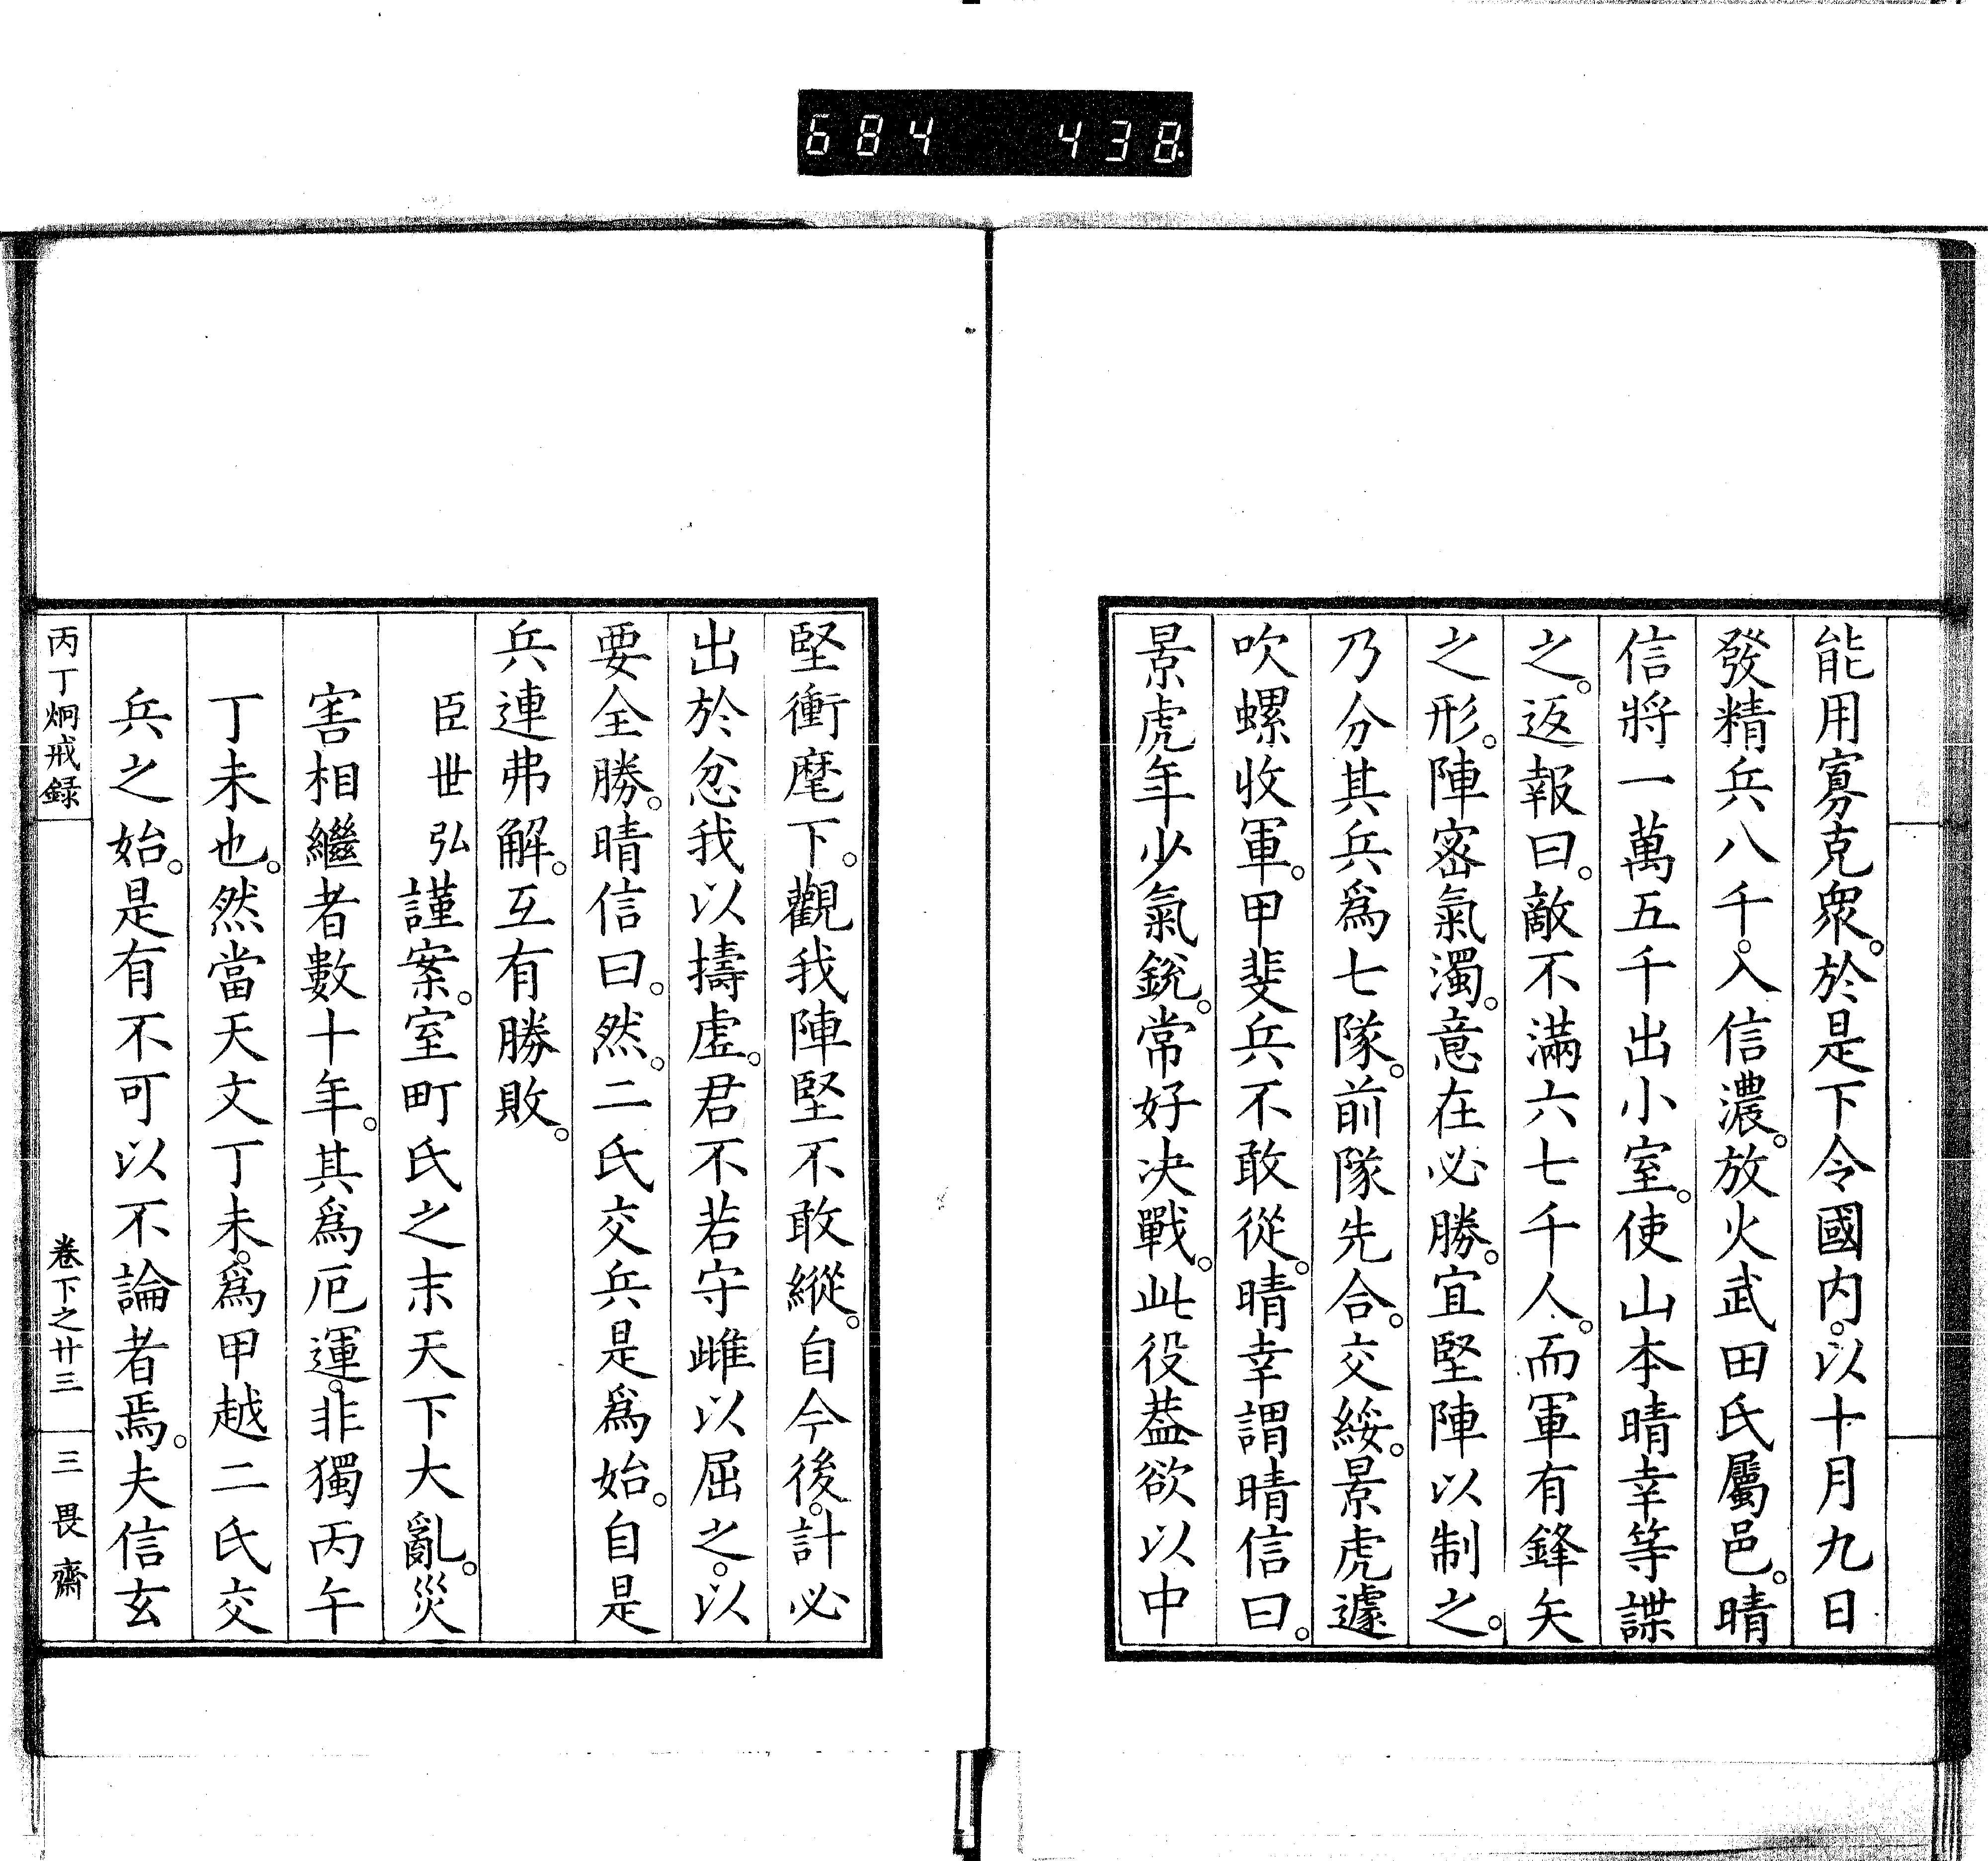 684 438
能用寡克衆。於是下令國内。以十月九日
發精兵八千。入信濃。放火武田氏屬邑。晴
信將一萬五千出小室。使山本晴幸等諜
之。返報曰。敵不滿六七千人。而軍有鋒矢
之形。陣密氣濁。意在必勝。宜堅陣以制之。
乃分其兵爲七隊。前隊先合。交綏。景虎遽
吹螺收軍。甲斐兵不敢從。晴幸謂晴信曰。
景虎年少氣銳。常好决戰。此役葢欲以中
堅衝麾下。觀我陣堅不敢縱。自今後。計必
出於忿我以擣虛。君不若守雌以屈之。以
要全勝。晴信曰。然。二氏交兵是爲始。自是
兵連弗解。互有勝敗。
臣世弘謹案。室町氏之末天下大亂。災
害相繼者數十年。其爲厄運。非獨丙午
丁未也。然當天文丁未。爲甲越二氏交
兵之始。是有不可以不論者焉。夫信玄
丙丁炯戒録 卷下之廿三 三畏齋